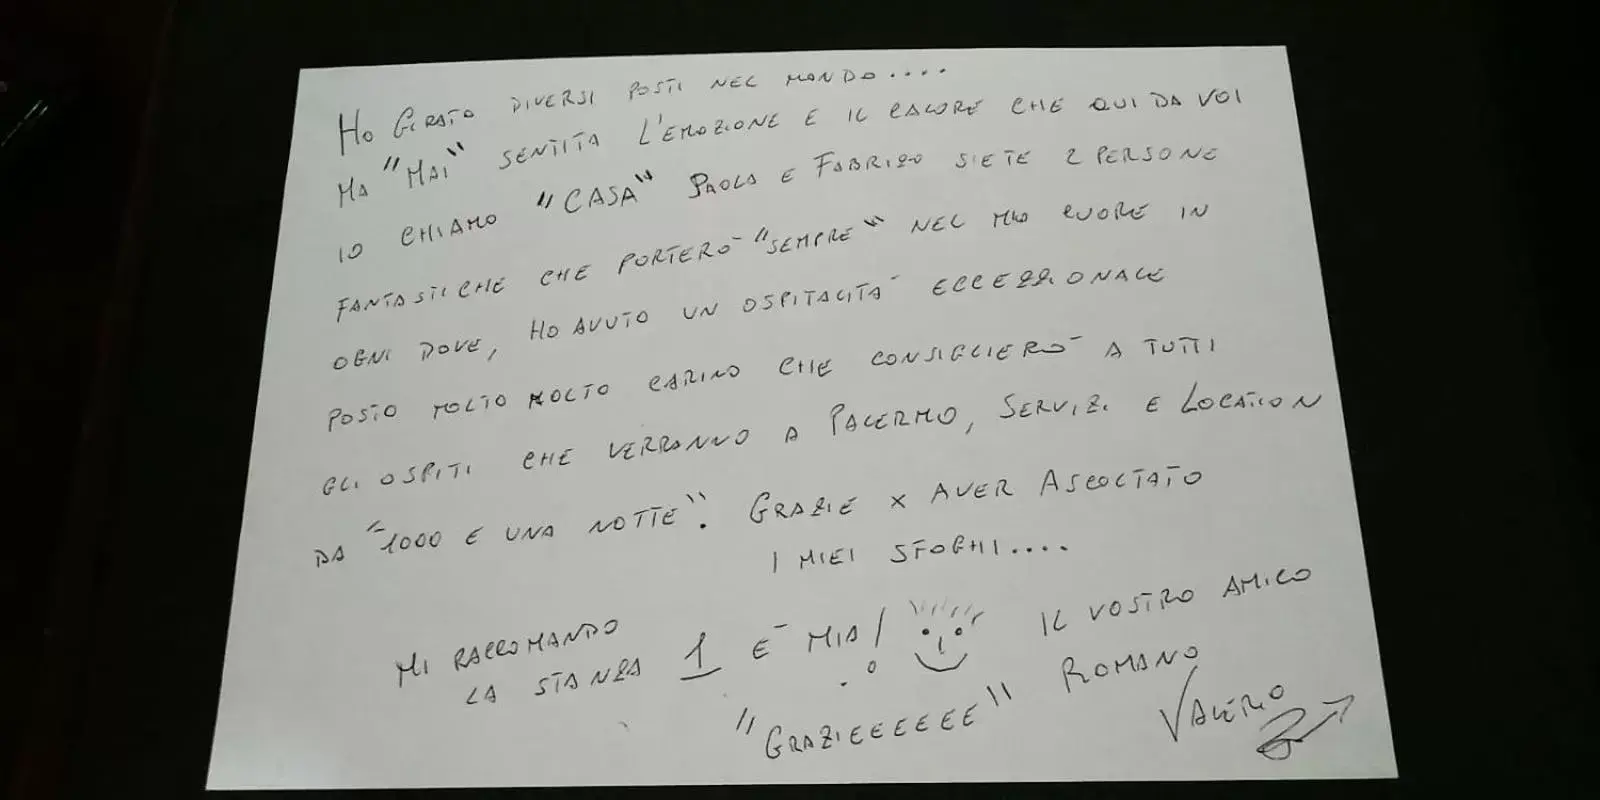 HO GIRATO DIVERSI POSTI NEL MONDO....
MA "MAI" SENTITA L'EMOZIONE E IL CALORE CHE QUI DA VOI
IO CHIAMO "CASA" PAOLA E FABRIZIO SIETE 2 PERSONE
FANTASTICHE CHE PORTERO' "SEMPRE" NEL MIO CUORE IN
OGNI DOVE, HO AVUTO UN OSPITALITA' ECCEZZIONALE
POSTO MOLTO MOLTO CARINO CHE CONSIGLIERO' A TUTTI
GLI OSPITI CHE VERRANNO A PALERMO, SERVIZI E LOCATION
DA "1000 E UNA NOTTE". GRAZIE X AVER ASCOLTATO
I MIEI SFOGHI....
MI RACCOMANDO
LA STANZA 1 E' MIA!
"GRAZIEEEEEE"
IL VOSTRO AMICO
ROMANO
VALERIO